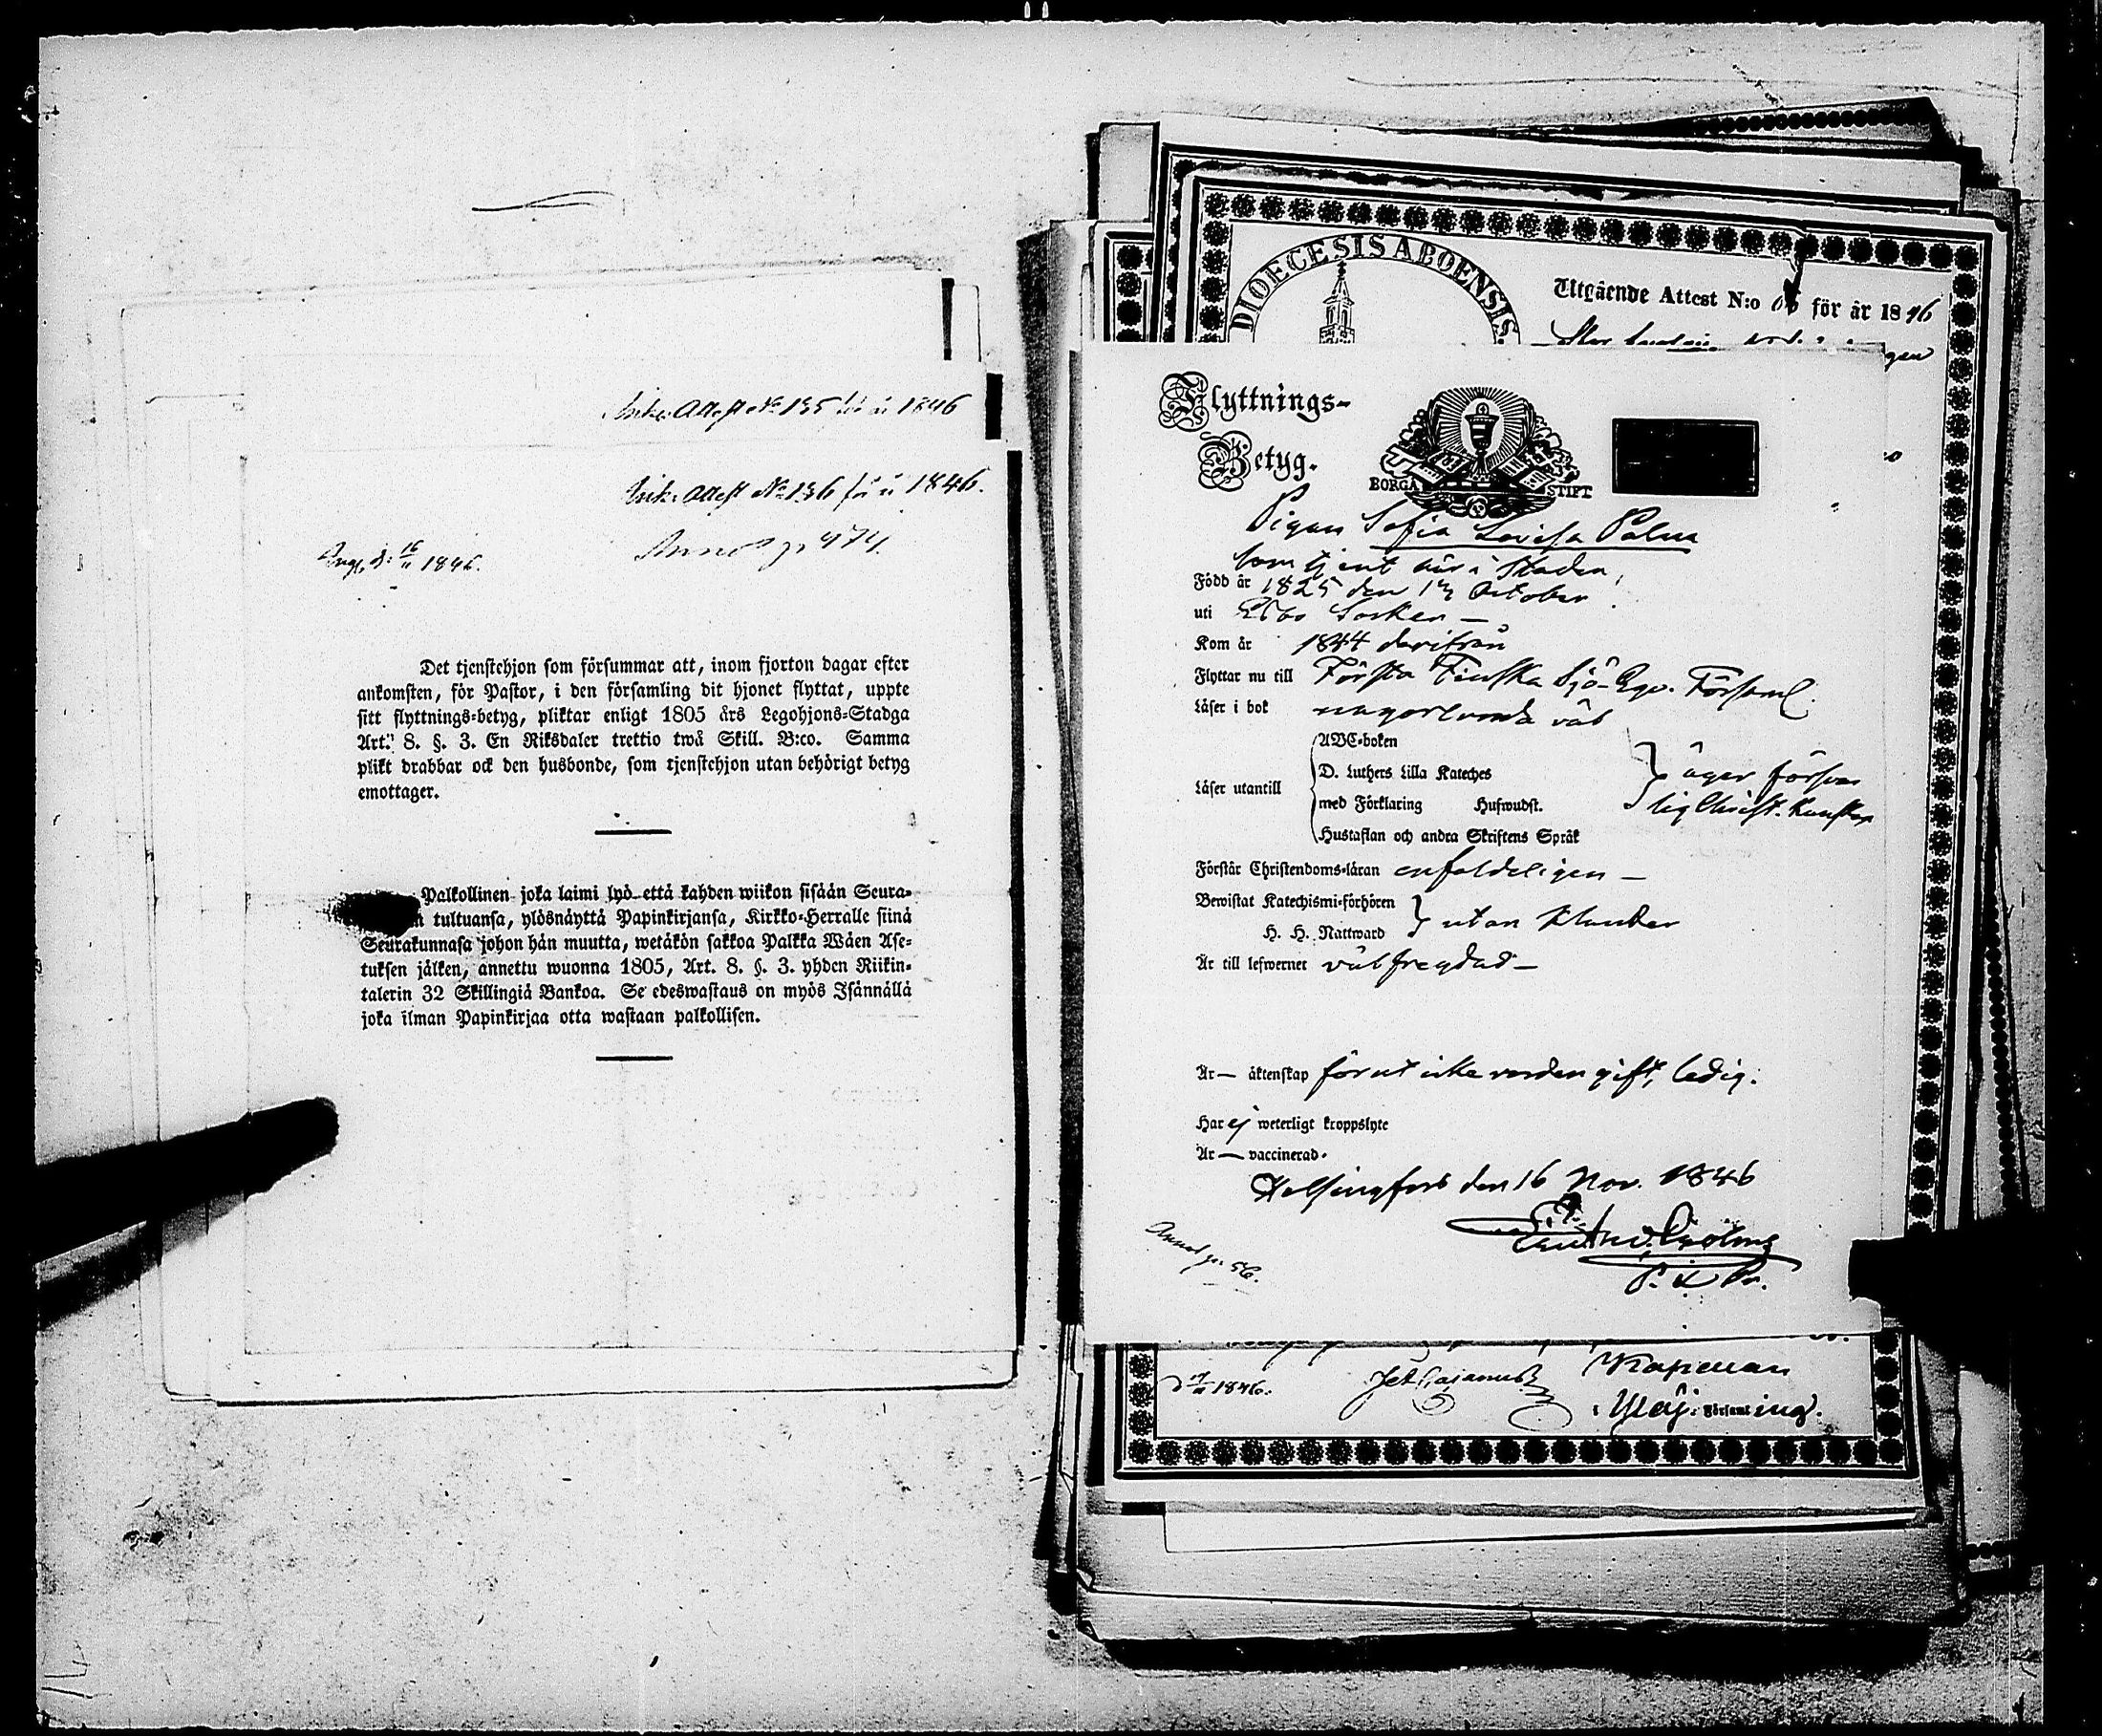 Attest No 135 för år 1846
Attest No 136 för år 1846.
16/11 1846.
Annot. p. 474.
Det tjenstehjon som försummar att, inom fjorton dagar efter
ankomsten, för Pastor, i den församling dit hjonet flyttat, uppte
sitt flyttnings-betyg, pliktar enligt 1805 års Legohjons-Stadga
Art. 8. §. 3. En Riksdaler trettio twå Skill. B:co. Samma
plikt drabbar ock den husbonde, som tjenstehjon utan behörigt betyg
emottager.
Palkollinen joka laimi lyö että kahden wiikon sisään Seura-
tultuansa, ylösnäyttä Papinkirjansa, Kirkko-Herralle siinä
Seurakunnasa johon hän muutta, wetäkön sakkoa Palkka Wäen Ase-
tuksen jälken, annettu wuonna 1805, Art. 8. §. 3. yhden Riikin-
talerin 32 Skillingiä Bankoa. Se edeswastaus on myös Isännällä
joka ilman Papinkirjaa otta wastaan palkollisen.
DIOECESIS ABOENSIS.
Utgående Attest N:o för år 1846
Flyttnings-
Betyg.
BORGÅ STIFT
Pigan Sofia Lovisa Palm
som tjent här i Staden,
Född år 1825 den 13 October
uti Esbo Socken —
Kom år 1844 derifrån
Flyttar nu till Första Finska Sjö-Eqv. Församl.
Läser i bok någorlunda väl
ABC-boken
D. Luthers Lilla Kateches
Läser utantill
med Förklaring Hufwudst.
Hustaflan och andra Skriftens Språk
äger försvar
lig Christ. Kunskap
Förstår Christendoms-läran enfaldeligen —
Bewistat Katechismi-förhören
H. H. Nattward
utan klander
Är till lefwernet välfrejdad —
Är — äktenskap förut icke varden gift, ledig.
Har ej weterligt kroppslyte
Är — vaccinerad.
Helsingfors den 16 Nov. 1846
Annot p. 56.
1846.
Kapellan
i Församl